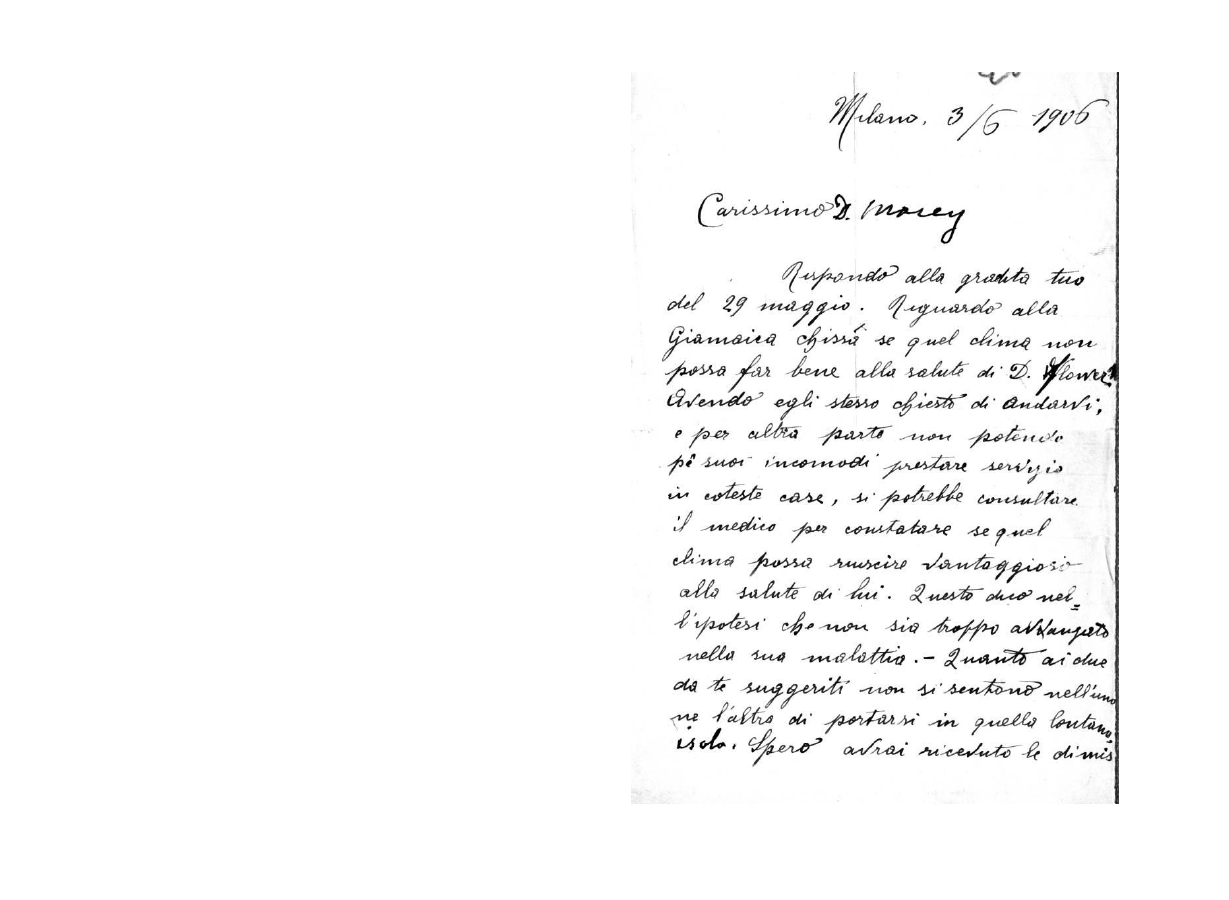 Milano, 3/6 1906
Carissimo D. Macey
Rispondo alla gradita tua
del 29 maggio. Riguardo alla
Giamaica chissà se quel clima non
possa far bene alla salute di D.
Avendo egli stesso chiesto di andarvi,
e per altra parte non potendo
pê suoi incomodi prestare servizio
in coteste case, si potrebbe consultare
il medico per constatare se quel
clima possa riuscire vantaggioso
alla salute di lui. Questo dico nel=
l'ipotesi che non sia troppo avvanzato
nella sua malattia. - Quanto ai due
da te suggeriti non si sentono nell'uno
ne l'altro di portarsi in quella lontana
isola. Spero avrai ricevuto le dimis